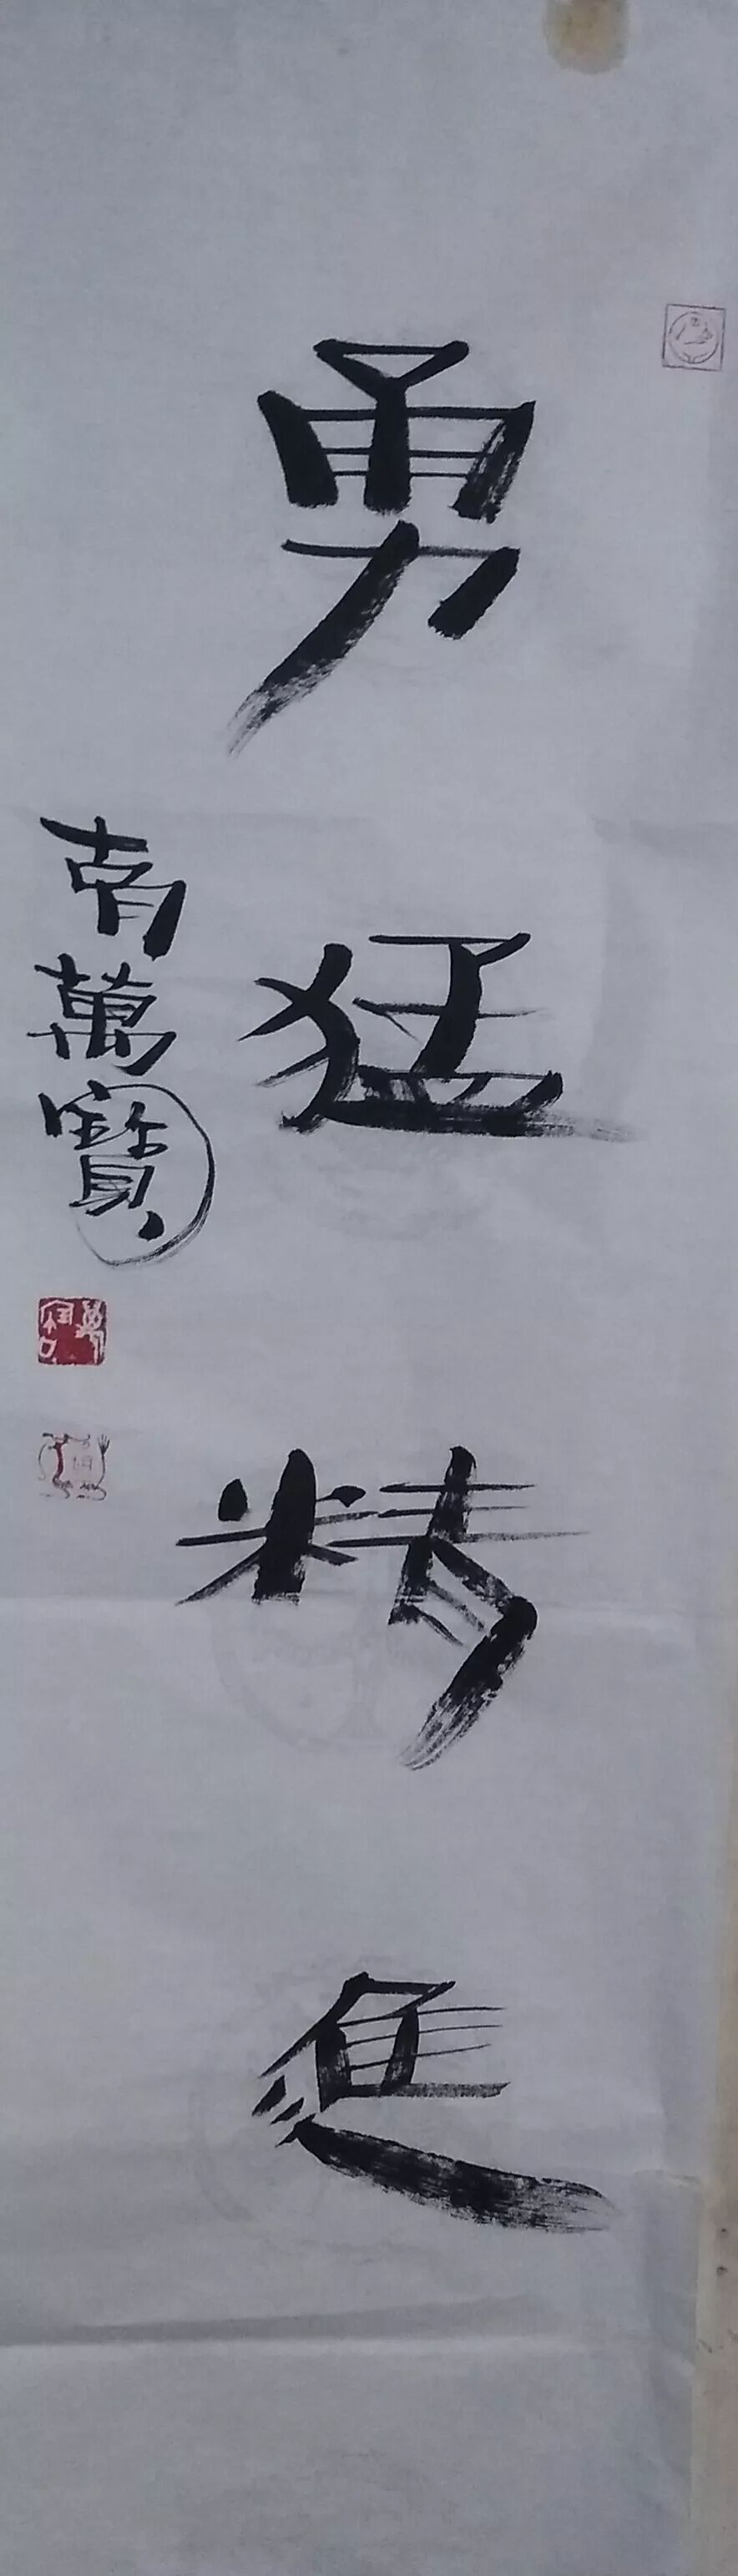 勇猛精進
南萬寶